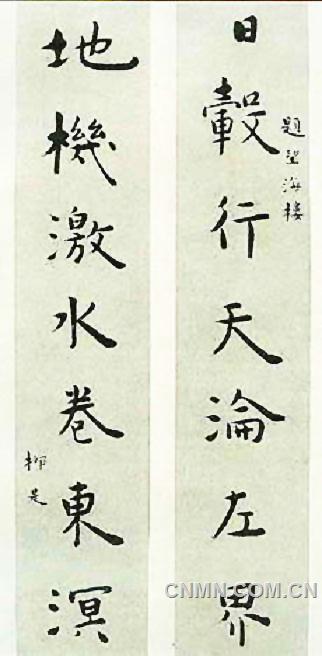 日轂行天淪左界
題望海樓
地機激水卷東溟
柳是
CNMN.COM.CN